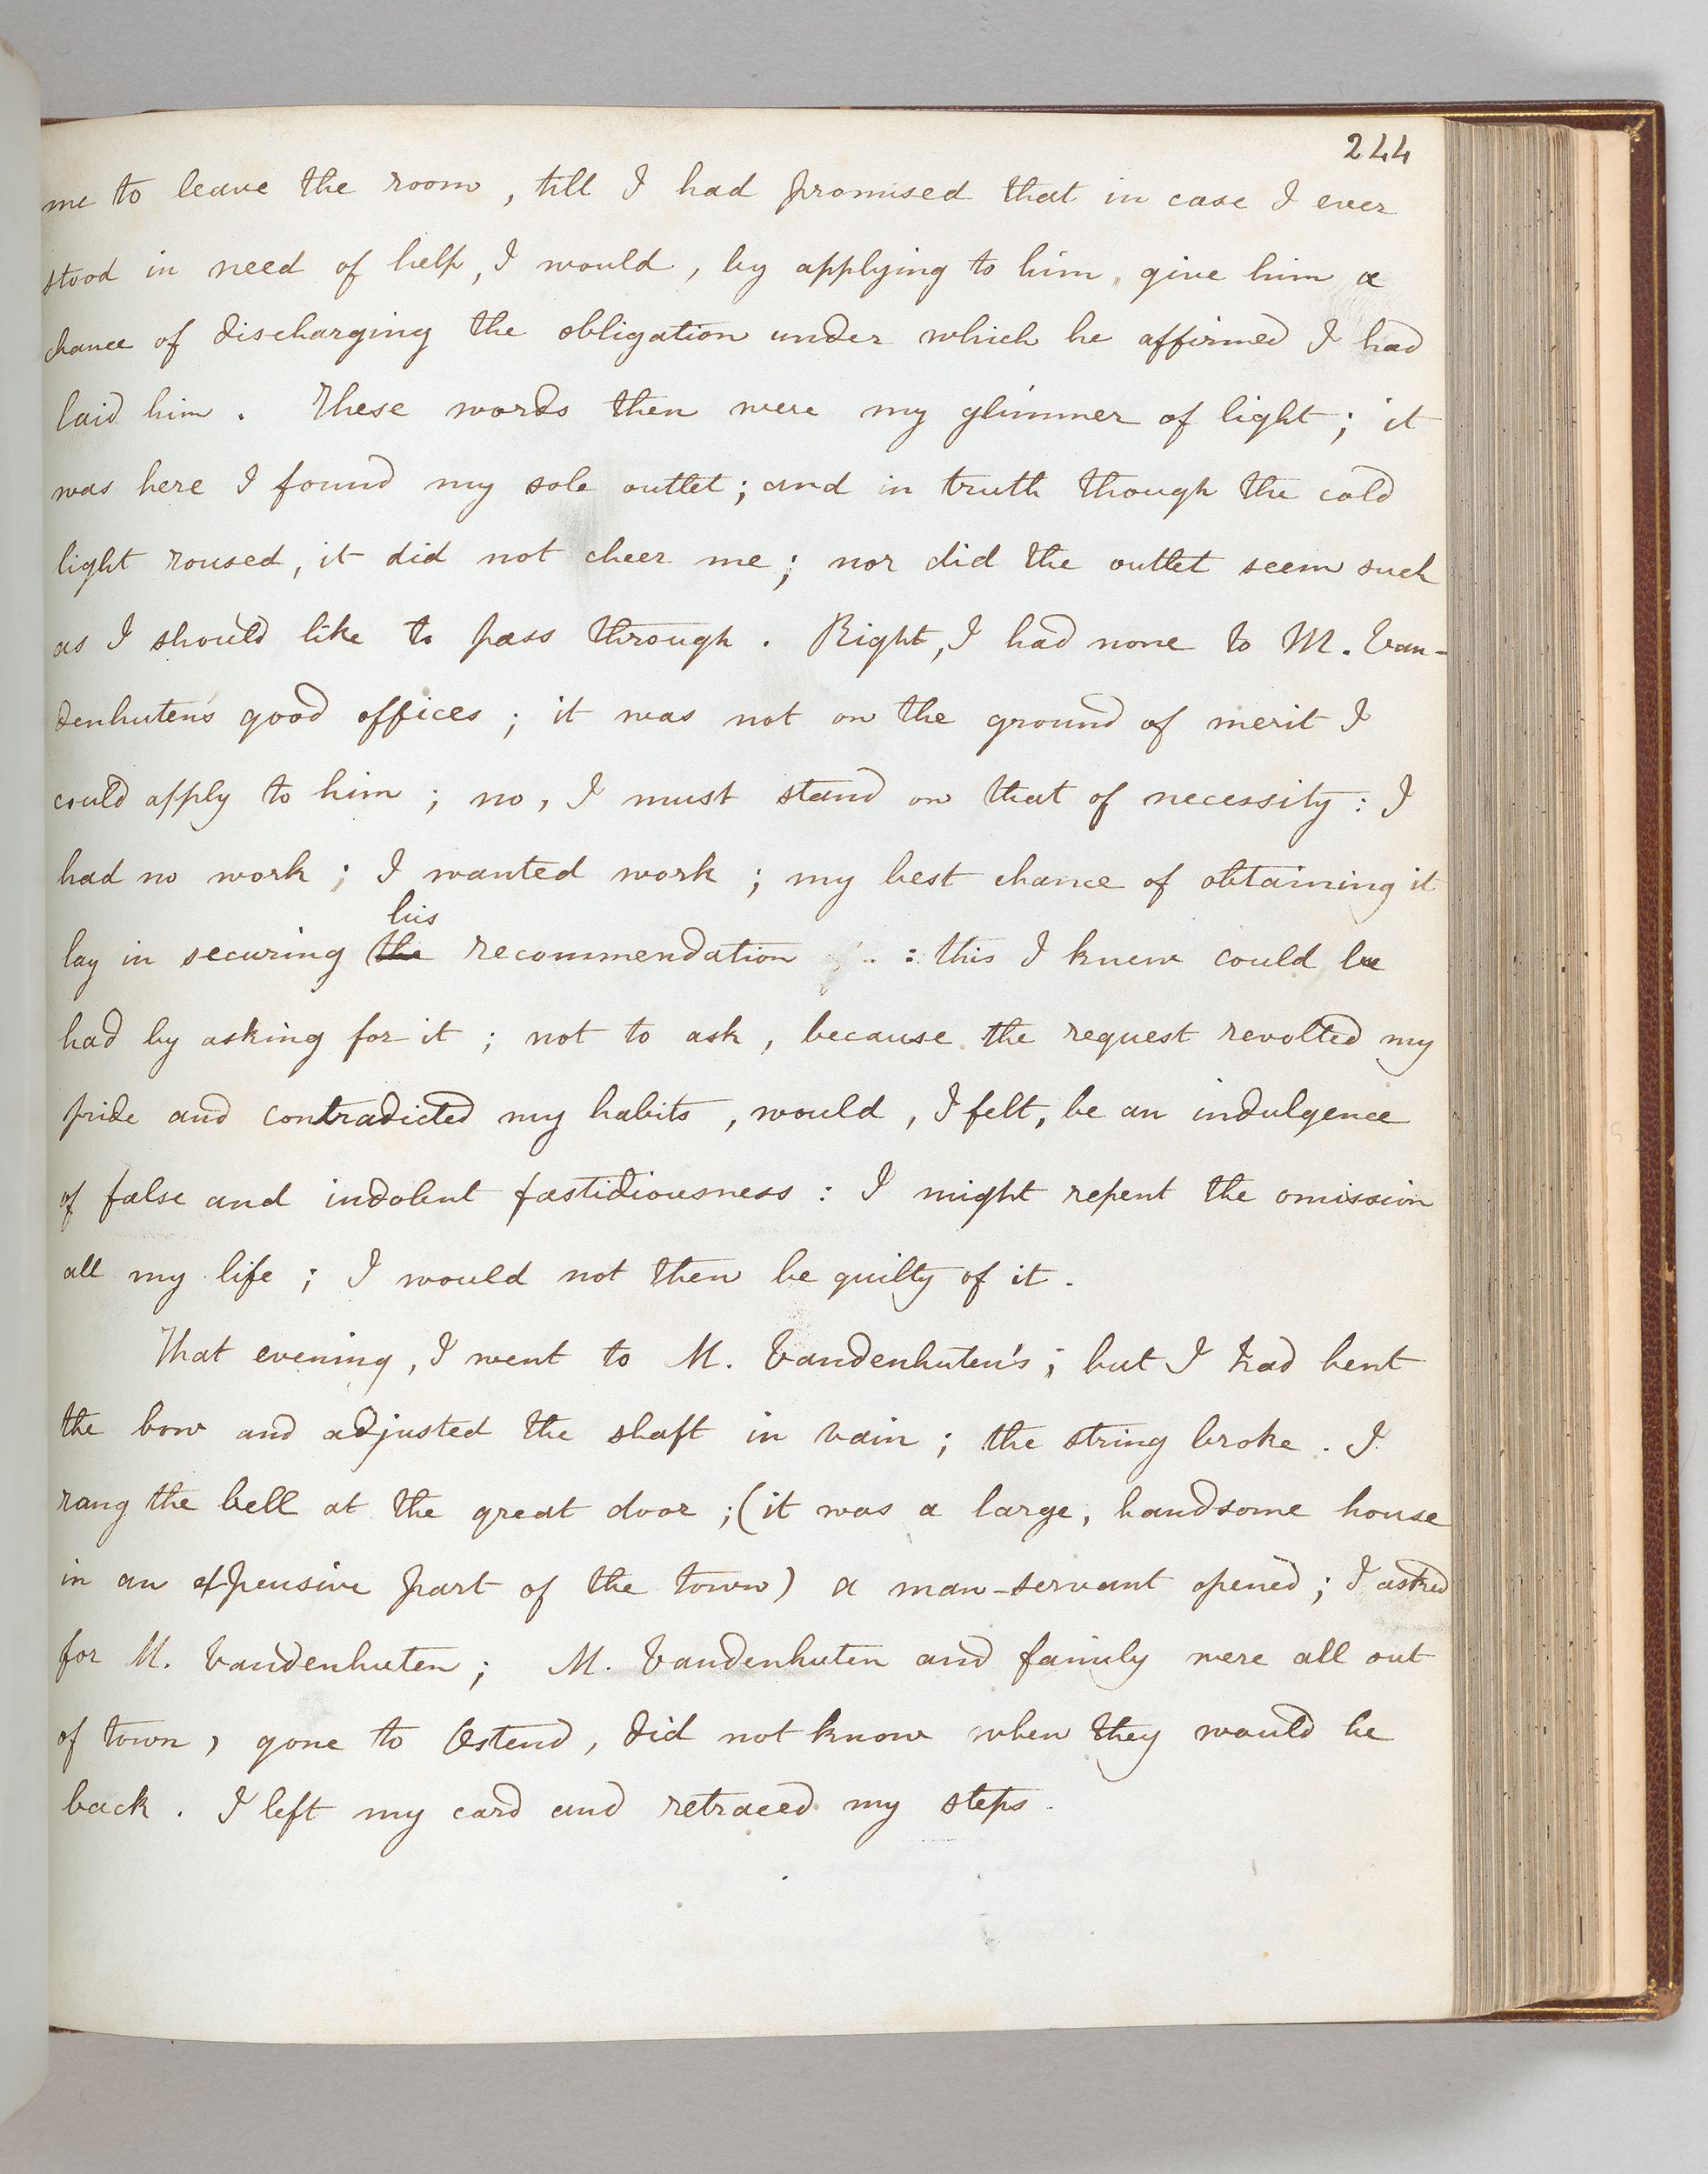 244
me to leave the room, till I had promised that in case I ever
stood in need of help, I would, by applying to him, give him a
chance of discharging the obligation under which he affirmed I had
laid him. These words then were my glimmer of light; it
was here I found my sole outlet; and in truth though the cold
light roused, it did not cheer me; nor did the outlet seem such
as I should like to pass through. Right, I had none to M. Van-
denhuten's good offices; it was not on the ground of merit I
could apply to him; no, I must stand on that of necessity: I
had no work; I wanted work; my best chance of obtaining it
his
lay in securing the recommendation : this I knew could be
had by asking for it; not to ask, because the request revolted my
pride and contradicted my habits, would, I felt, be an indulgence
of false and indolent fastidiousness: I might repent the omission
all my life; I would not then be guilty of it.
That evening, I went to M. Vandenhuten's; but I had bent
the bow and adjusted the shaft in vain; the string broke. I
rang the bell at the great door; (it was a large, handsome house
in an expensive part of the town) a man-servant opened; I asked
for M. Vandenhuten; M. Vandenhuten and family were all out
of town, gone to Ostend, did not know when they would be
back. I left my card and retraced my steps.